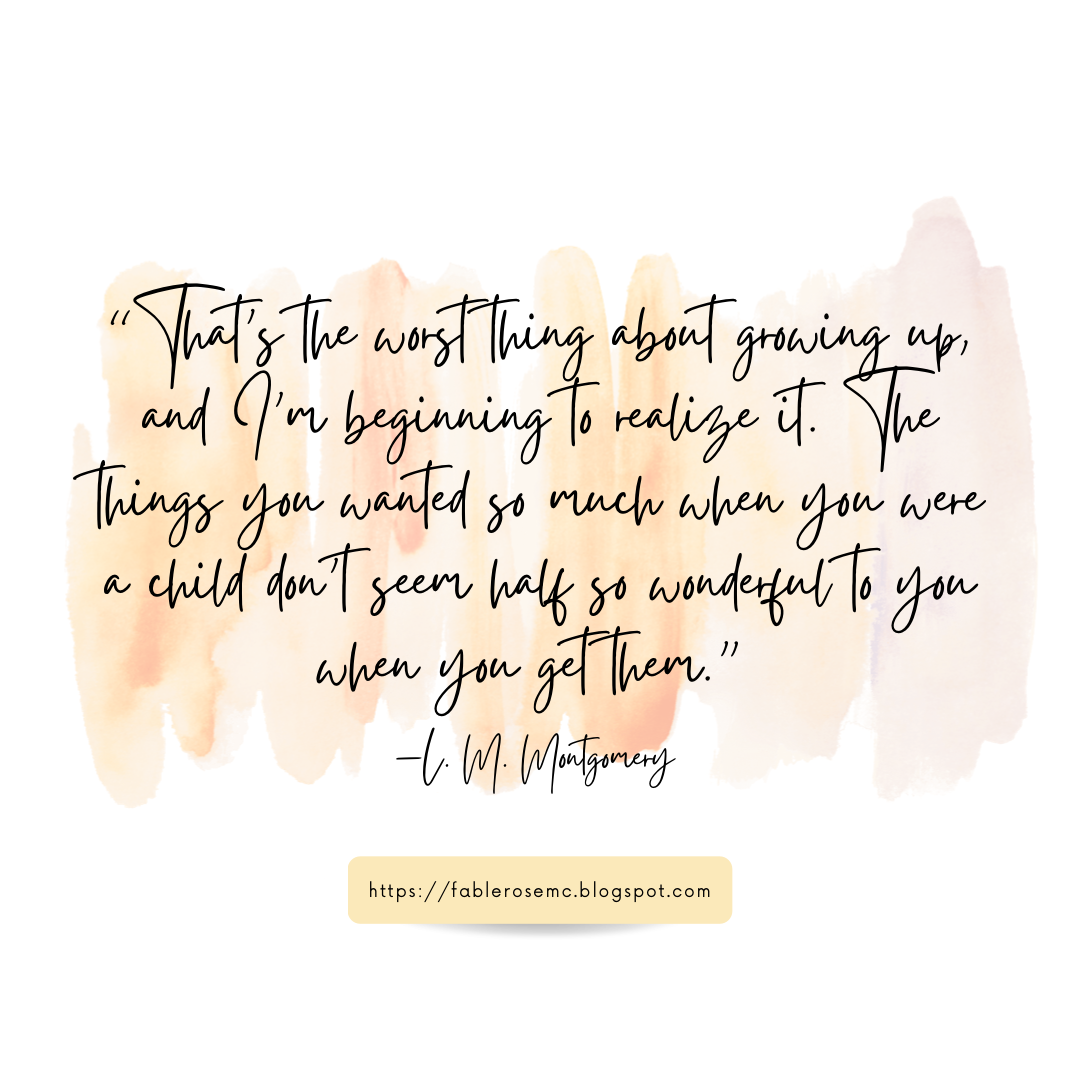 “That’s the worst thing about growing up,
and I’m beginning to realize it. The
things you wanted so much when you were
a child don’t seem half so wonderful to you
when you get them.”
—L. M. Montgomery
https://fablerosemc.blogspot.com